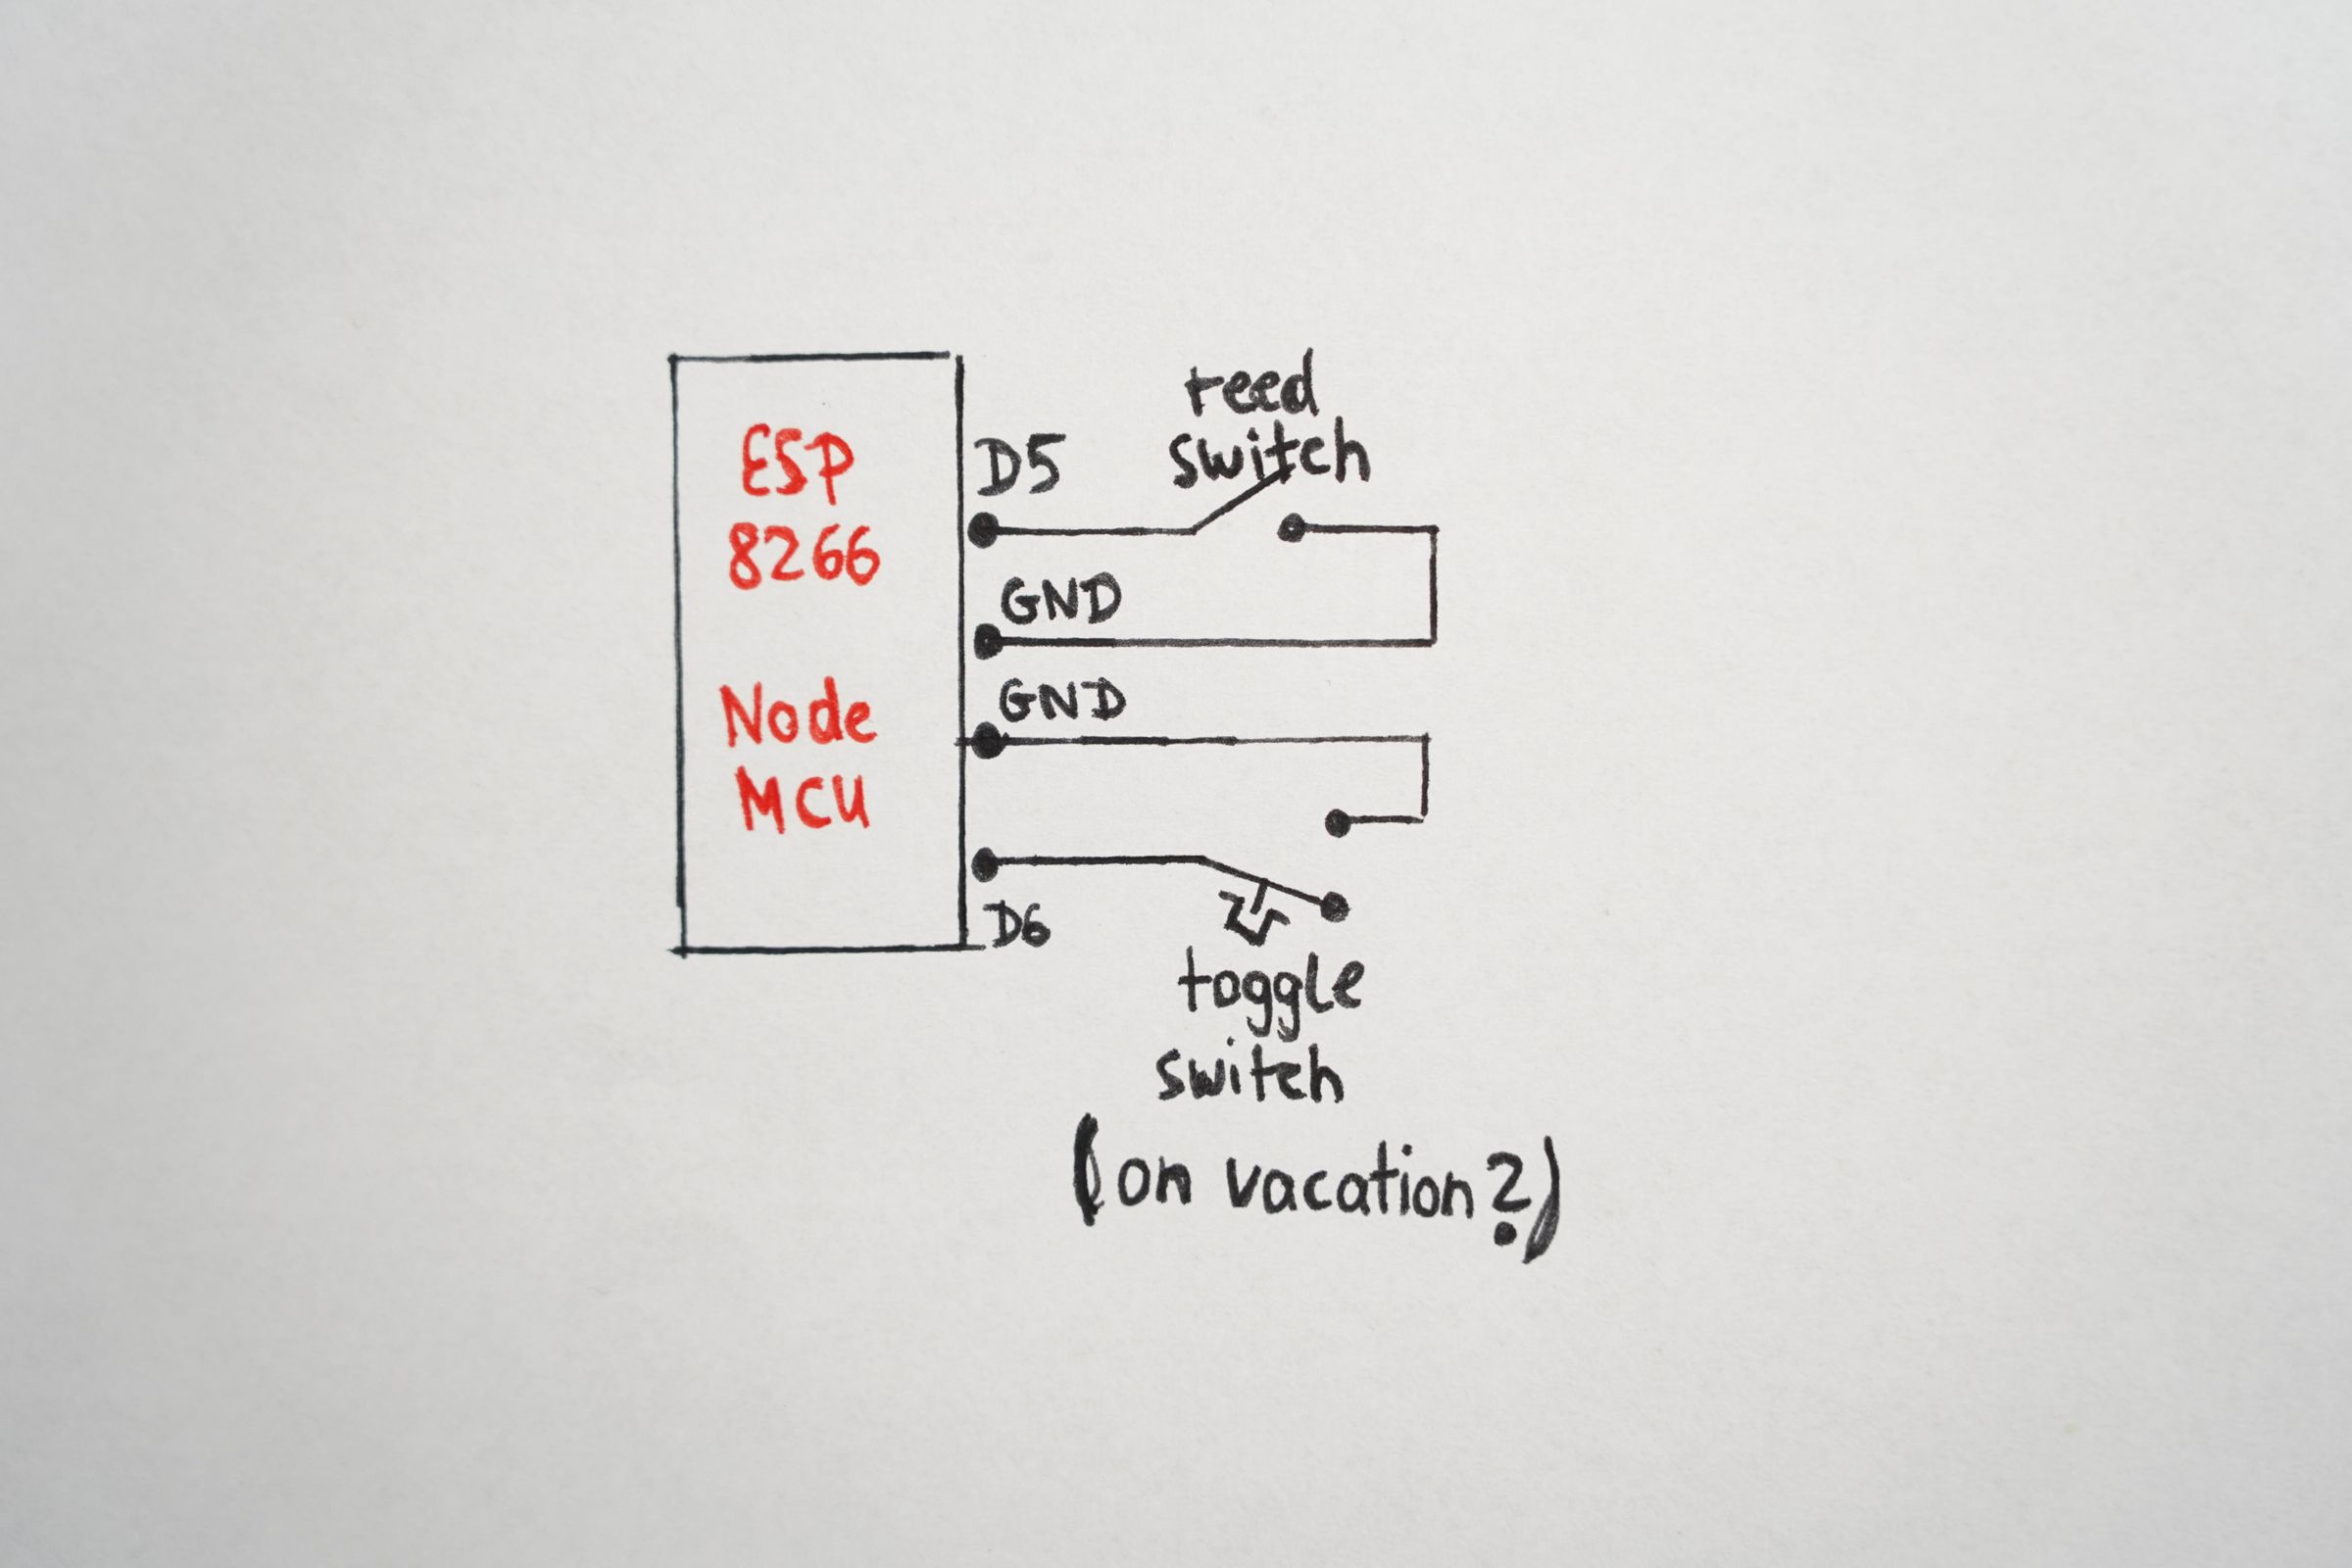 ESP
8266
Node
MCU
D5
reed
switch
GND
GND
D6
toggle
switch
(on vacation?)